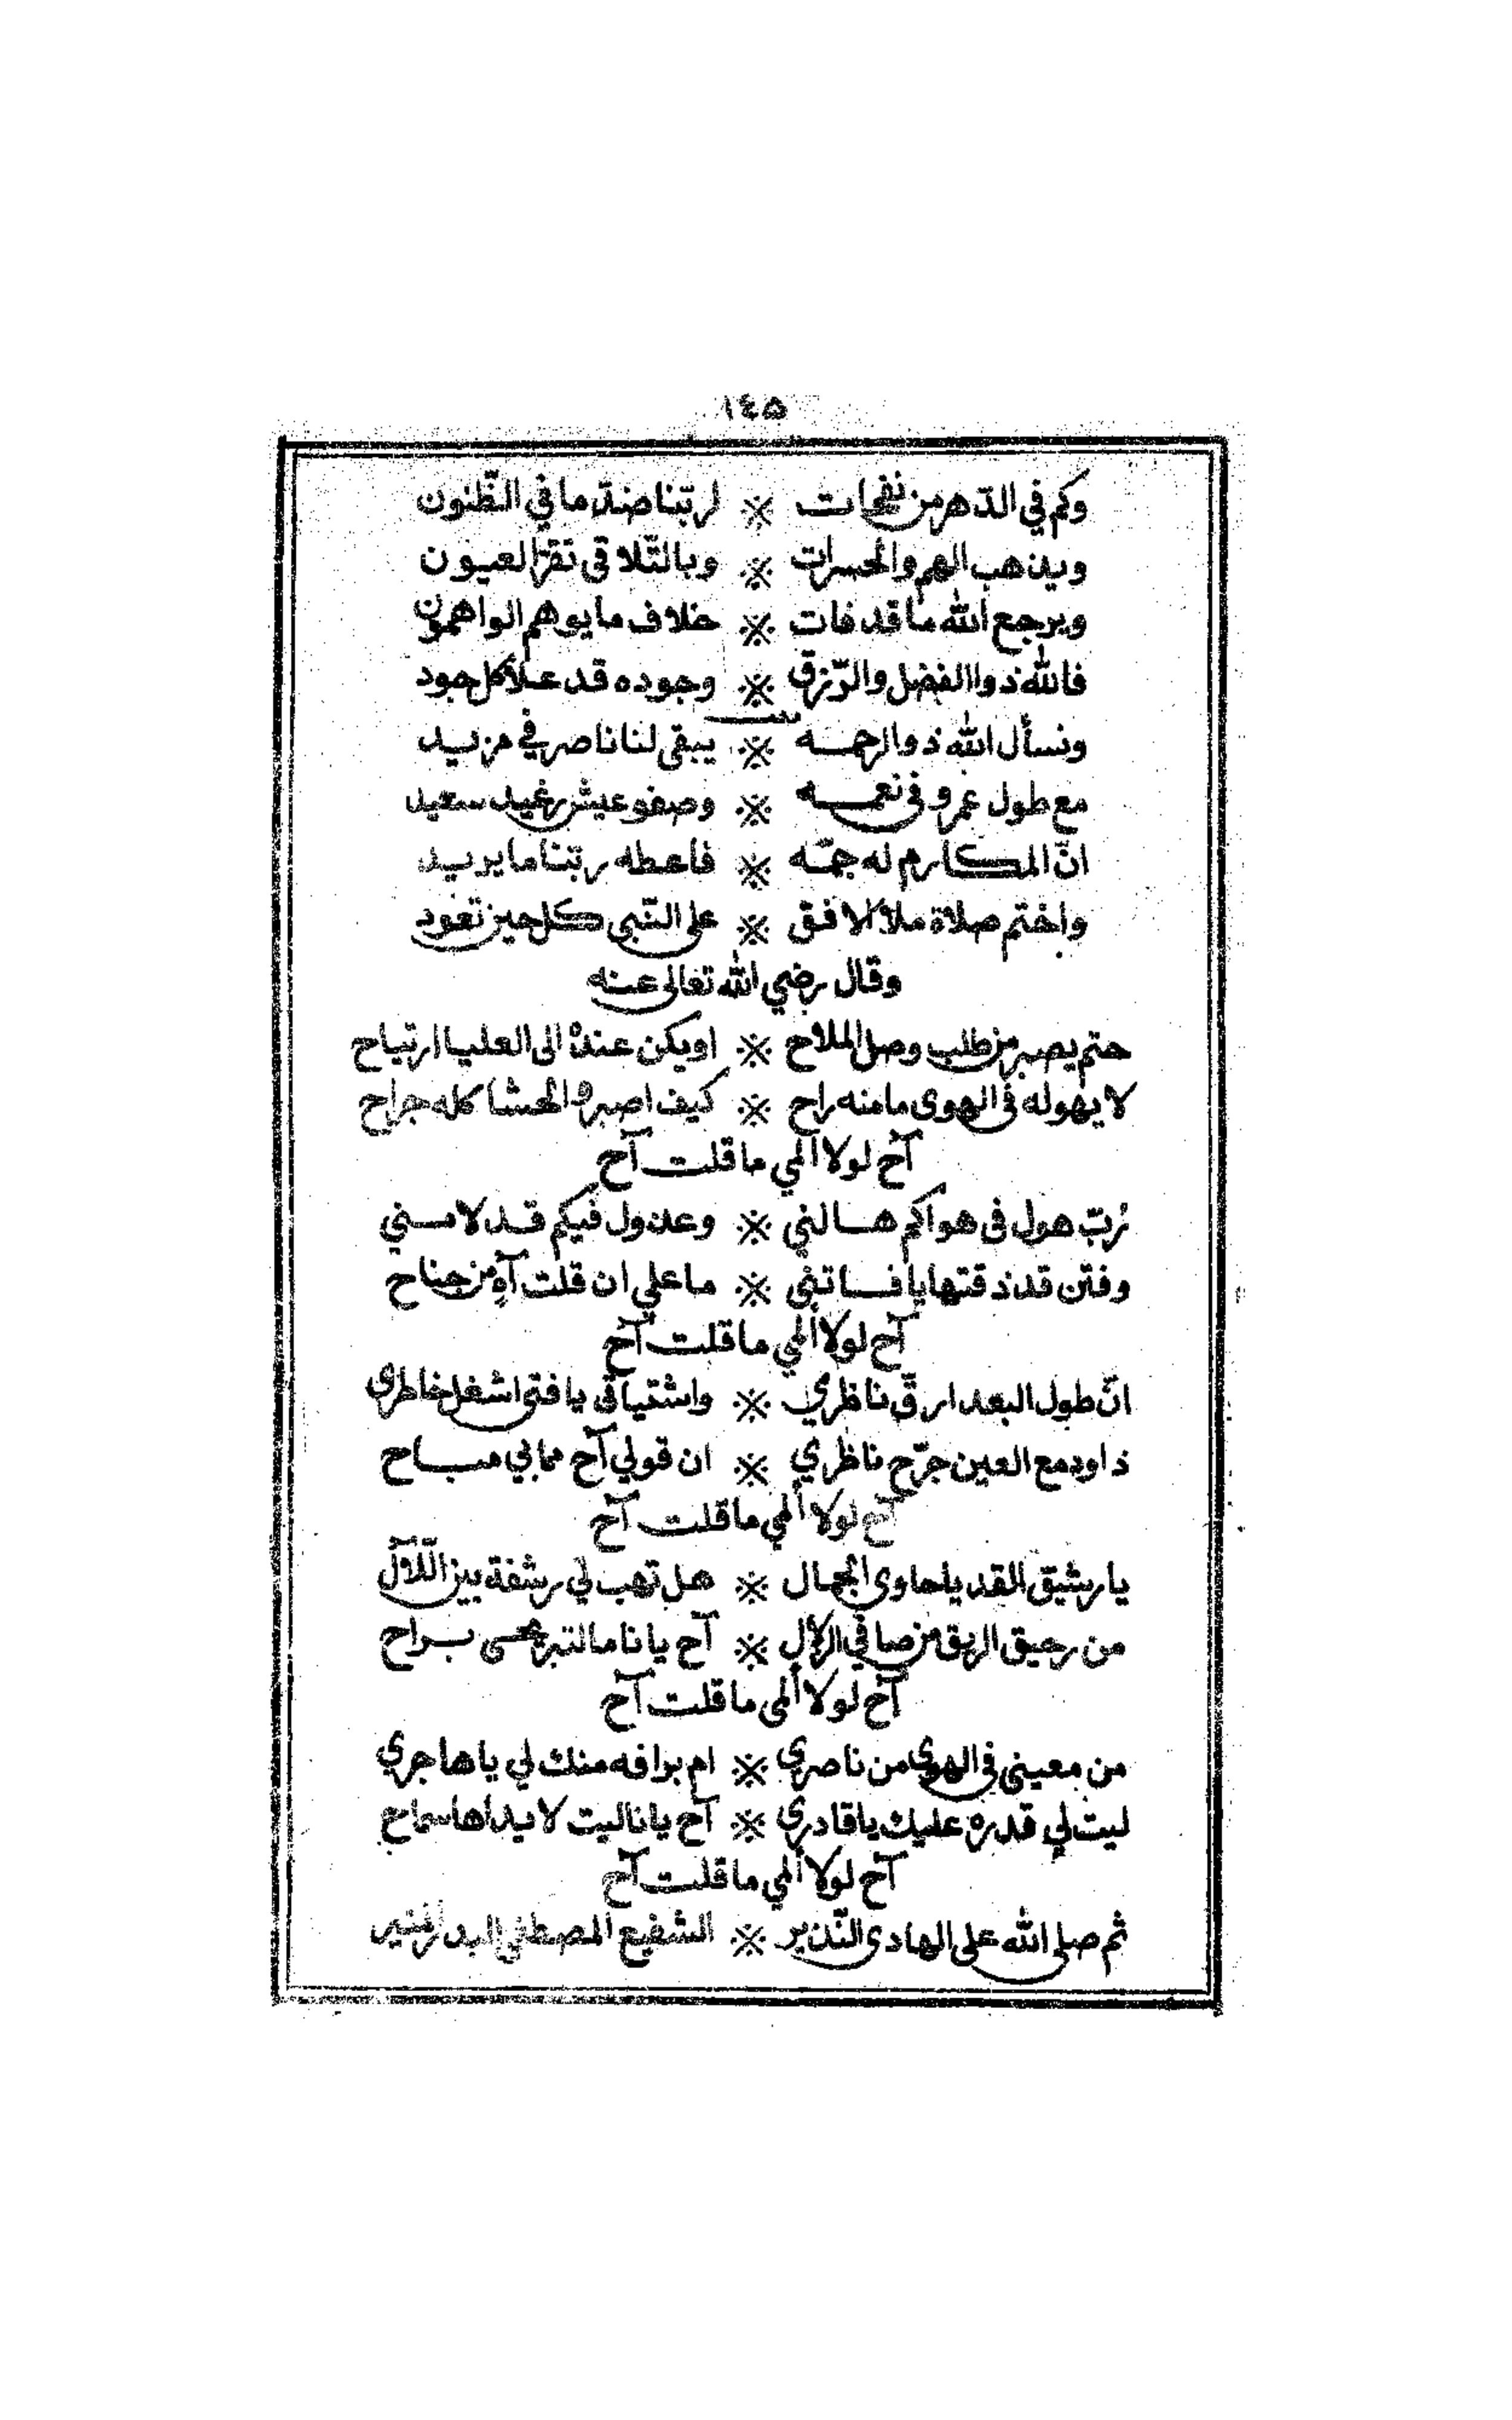 ١٤٥
وكم في الدّهر من نفحات ※ لربّنا ضدّ ما في الظّنون
ويذهب الهم والحسرات ※ وبالتّلاقى تقرّ العيون
ويرجع الله ما قد فات ※ خلاف ما يوهم الواهمون
فالله ذوا الفضل والرّزق ※ وجوده قد علا كل جود
ونسأل الله ذو الرحمه ※ يبقى لنا ناصر في مزيد
مع طول عمر وفي نعمه ※ وصفو عيش رغيد سعيد
انّ المكارم له جمّه ※ فاعطه ربّنا ما يريد
واختم صلاة ملأ الافق ※ على النّبي كل حين تعود
وقال رضي الله تعالى عنه
حتم يصبر من طلب وصل الملاح ※ او يكن عنده الى العليا ارتياح
لا يهوله في الهوى ما منه راح ※ كيف اصبر والحشا كله جراح
آح لولا ألمي ما قلت آح
ربّ هول في هواكم هالني ※ وعذول فيكم قد لامني
وفتن قد ذقتها يا فاتني ※ ما علي ان قلت آهٍ من جناح
آح لولا ألمي ما قلت آح
انّ طول البعد ارّق ناظري ※ واشتياقي يا فتى اشغل خاطري
ذا ودمع العين جرّح ناظري ※ ان قولي آح مما بي مباح
آح لولا ألمي ما قلت آح
يا رشيق القد يا حاوى الجمال ※ هل تهب لي رشفة بين اللآل
من رحيق الريق من صافي الزلال ※ آح يا نا مالتبريحى براح
آح لولا ألمي ما قلت آح
من معيني في الهوى من ناصري ※ ام برافه منك لي يا هاجري
ليت لي قدره عليك يا قادري ※ آح يا نا ليت لا يداها سماح
آح لولا ألمي ما قلت آح
ثم صلى الله على الهادى النّذير ※ الشفيع المصطفى البدر المنير